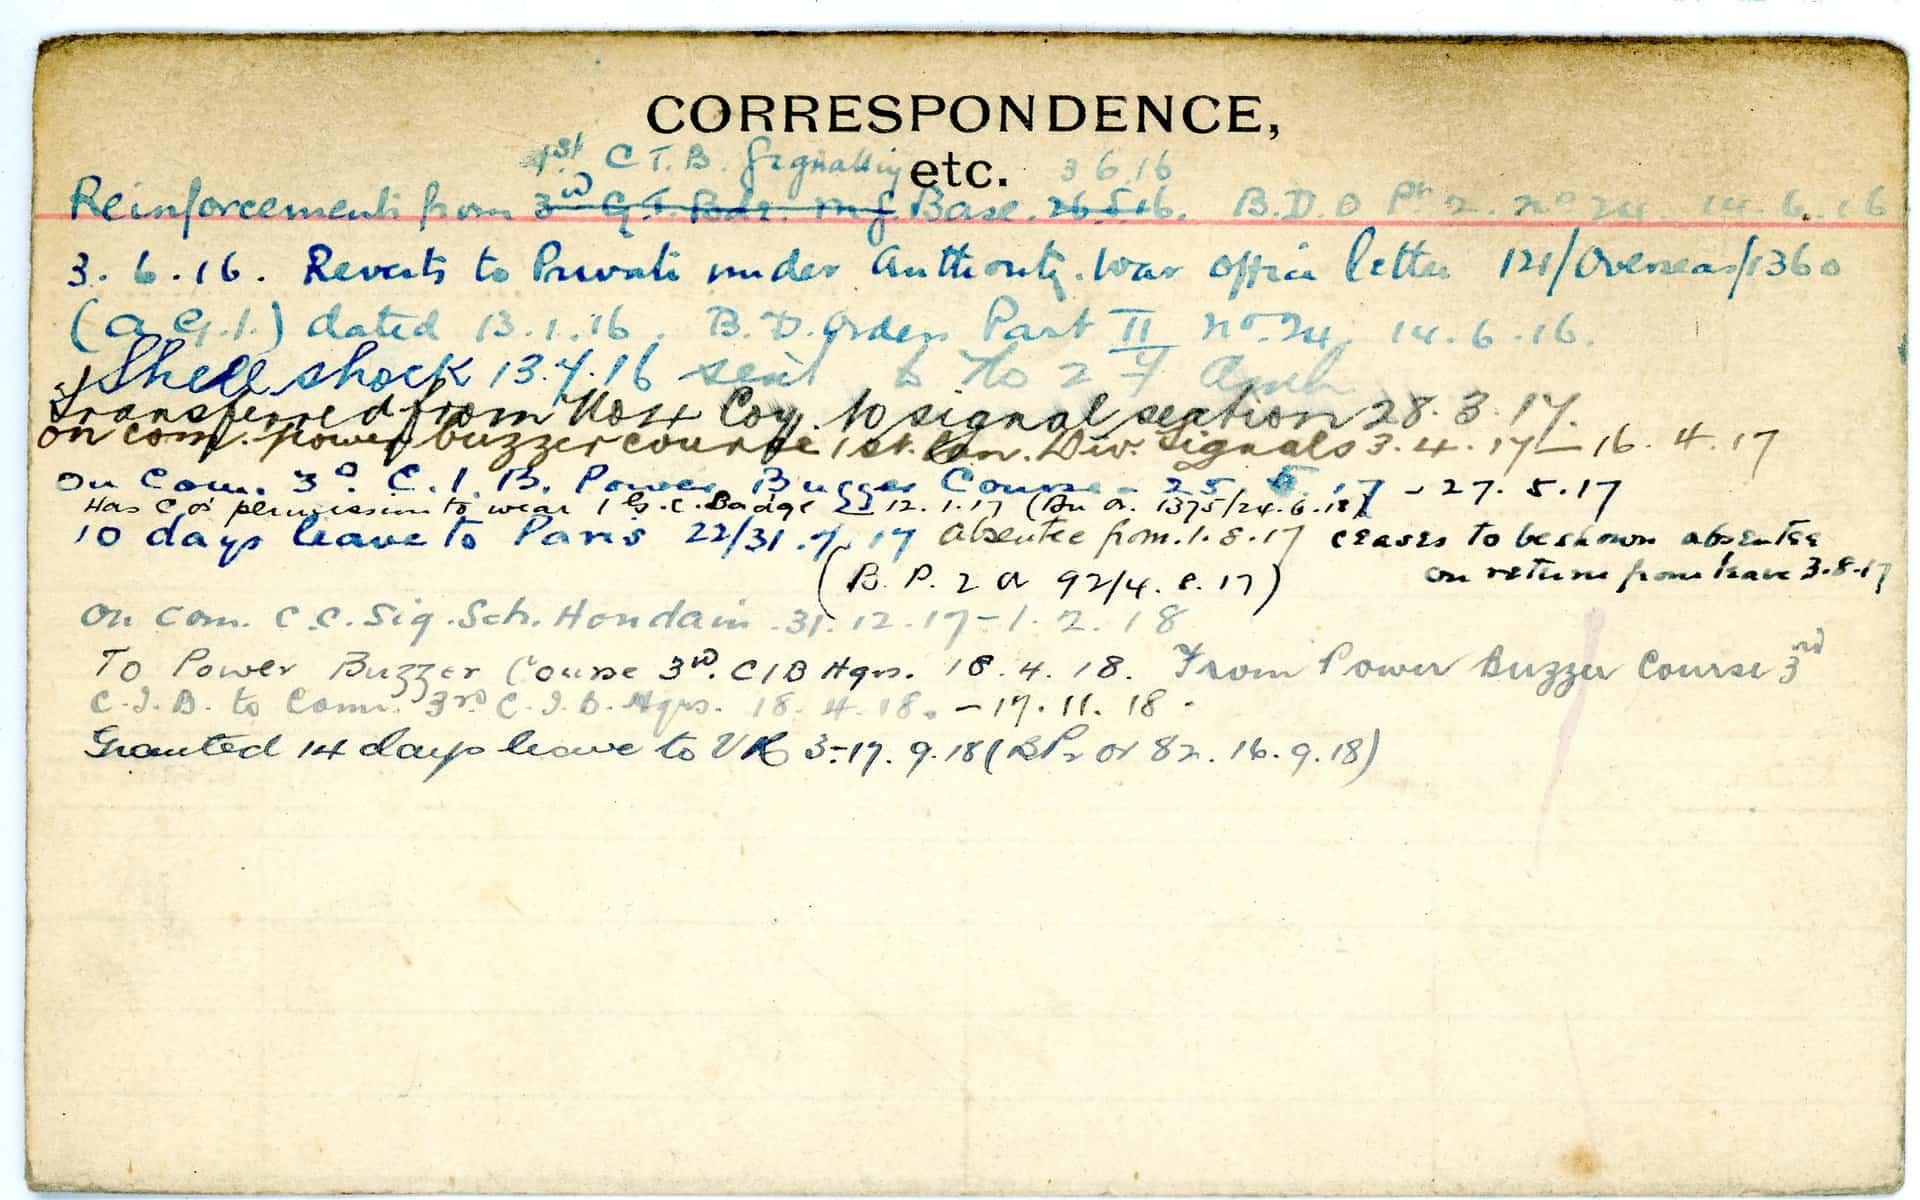 CORRESPONDENCE,
etc.
1st C T. B. Signalling 3 6.16
Reinforcements from 3rd Base. 26 5 16. B.D.O Pt 2. no 24. 14.6.16
3.6.16. Reverts to Private under Authority. War office letter 121/Overseas/1360
(A.G.1.) dated 13.1.16. B.D. Orders Part II no 24. 14.6.16.
Shell shock 13.7.16 sent to No 2 F Amb
Transferred from Coy. to signal section 28.3.17.
On com. power buzzer course 1st. Can. Div. Signals 3.4.17 – 16.4.17
On Com. 3rd. C.I.B. Power Buzzer Course - 25.5.17 - 27.5.17
Has C O's permission to wear 1 G.C. Badge 12.1.17 (Bn O. 1375/24.6.18)
10 days leave to Paris 22/31.7.17 absentee from. 1.8.17 ceases to be shown absentee
on return from leave 3.8.17
(B.P. 2 O 92/4.8.17)
On com. C.C. Sig. Sch. Houdain 31.12.17 - 1.2.18
To Power Buzzer Course 3rd. CIB Hqrs. 18.4.18. From Power Buzzer Course 3rd
C.I.B. to Com. 3rd C.I.B. Hqrs. 18.4.18. – 17.11.18.
Granted 14 days leave to UK 3-17.9.18 (BP2 O 82. 16.9.18)